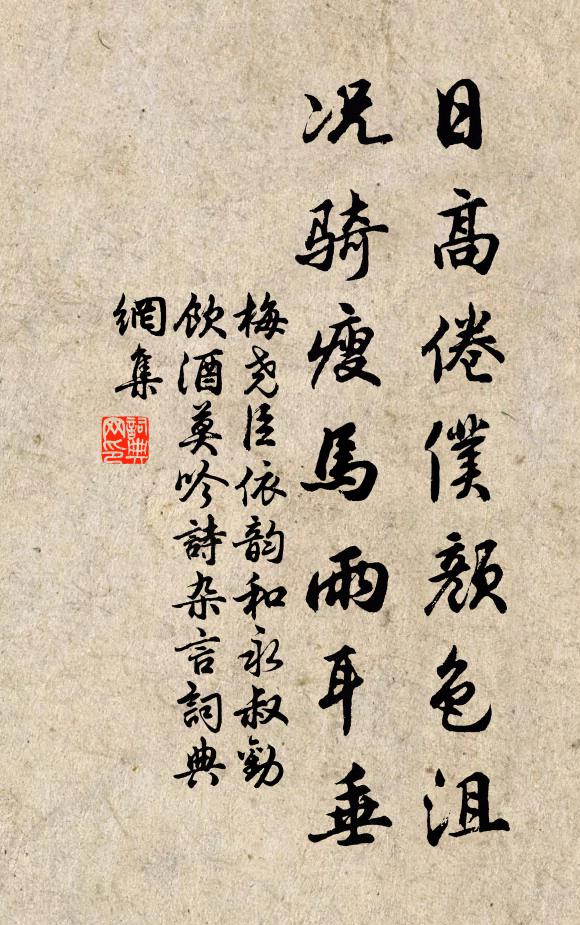 日高倦僕顏色沮
况騎瘦馬兩耳垂
梅堯臣依韵和永叔勸
飲酒莫吟詩杂言詞典
網集
詞典
网印